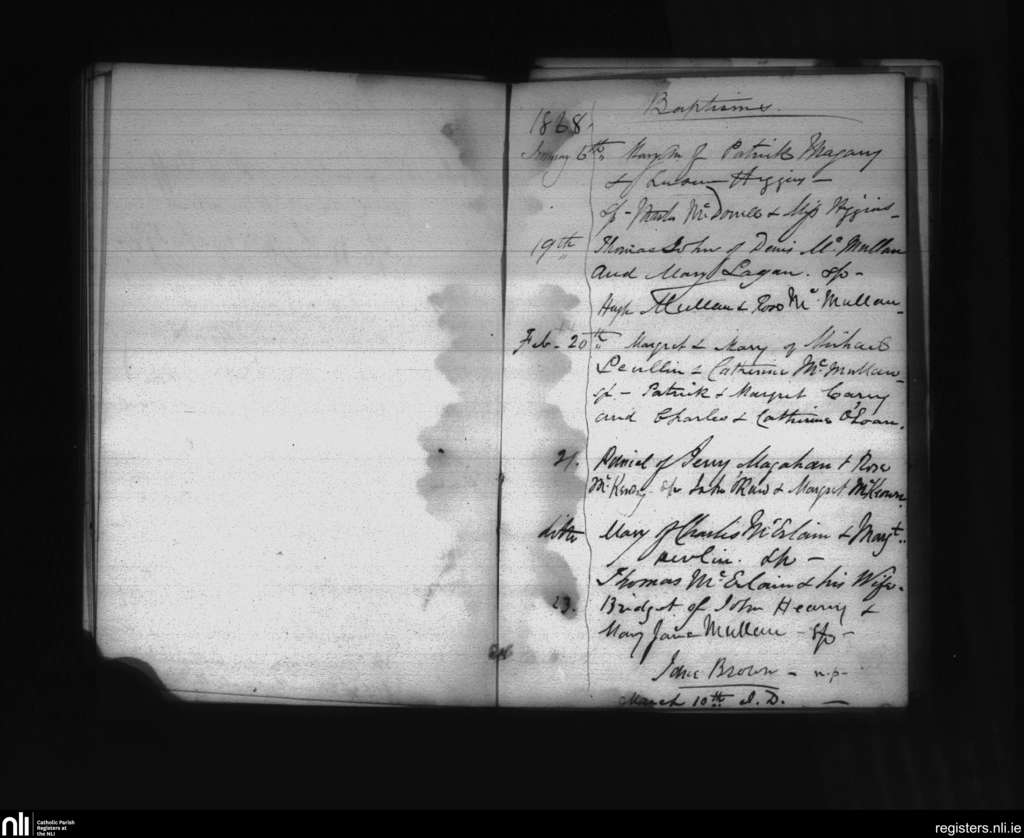 Baptisms.
1868.
January 6th Mary Ann of Patrick Magany
& of Susan Higgins -
Sp - McDonell & Miss Higgins -
19th Thomas John of Denis Mc Mullan
and Mary Lagan. Sp -
Hugh Mullan & Rose Mc Mullan -
Feb - 20th Margret & Mary of Michael
Devlin & Catherine McMullan -
sp - Patrick & Margret Carry
and Charles & Catherine O'Loan.
21. Daniel of Jerry Magahan & Rose
McKenny sp John & Margret McKeown
ditto Mary of Charles McErlain & Margt
Devlin. Sp -
Thomas McErlain & his Wife.
23. Bridget of John Hearny &
Mary Jane Mullan - Sp -
Jane Brown - n.p -
March 10th I. D. -
nli
Catholic Parish
Registers at
the NLI
registers.nli.ie